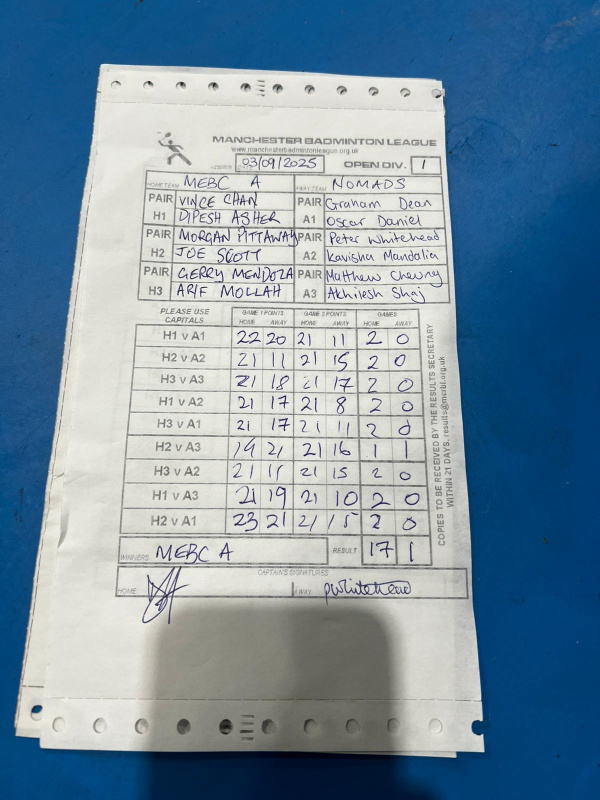 MANCHESTER BADMINTON LEAGUE
www.manchesterbadmintonleague.org.uk
03/09/2025 OPEN DIV. 1
HOME TEAM MEBC A AWAY TEAM NOMADS
PAIR VINCE CHAN PAIR Graham Dean
H1 DIPESH ASHER A1 Oscar Daniel
PAIR MORGAN PITTAWAY PAIR Peter Whitehead
H2 JOE SCOTT A2 Kavisha Mandalia
PAIR GERRY MENDOZA PAIR Matthew Cheung
H3 ARIF MOLLAH A3 Akhilesh Shaj
PLEASE USE CAPITALS GAME 1 POINTS GAME 2 POINTS GAMES
HOME AWAY HOME AWAY HOME AWAY
H1 v A1 22 20 21 11 2 0
H2 v A2 21 11 21 15 2 0
H3 v A3 21 18 21 17 2 0
H1 v A2 21 17 21 8 2 0
H3 v A1 21 17 21 11 2 0
H2 v A3 19 21 21 16 1 1
H3 v A2 21 21 15 2 0
H1 v A3 21 19 21 10 2 0
H2 v A1 23 21 21 15 2 0
WINNERS MEBC A RESULT 17 1
CAPTAIN'S SIGNATURES
HOME AWAY pwhitehead
COPIES TO BE RECEIVED BY THE RESULTS SECRETARY
WITHIN 21 DAYS. results@mcrbl.org.uk